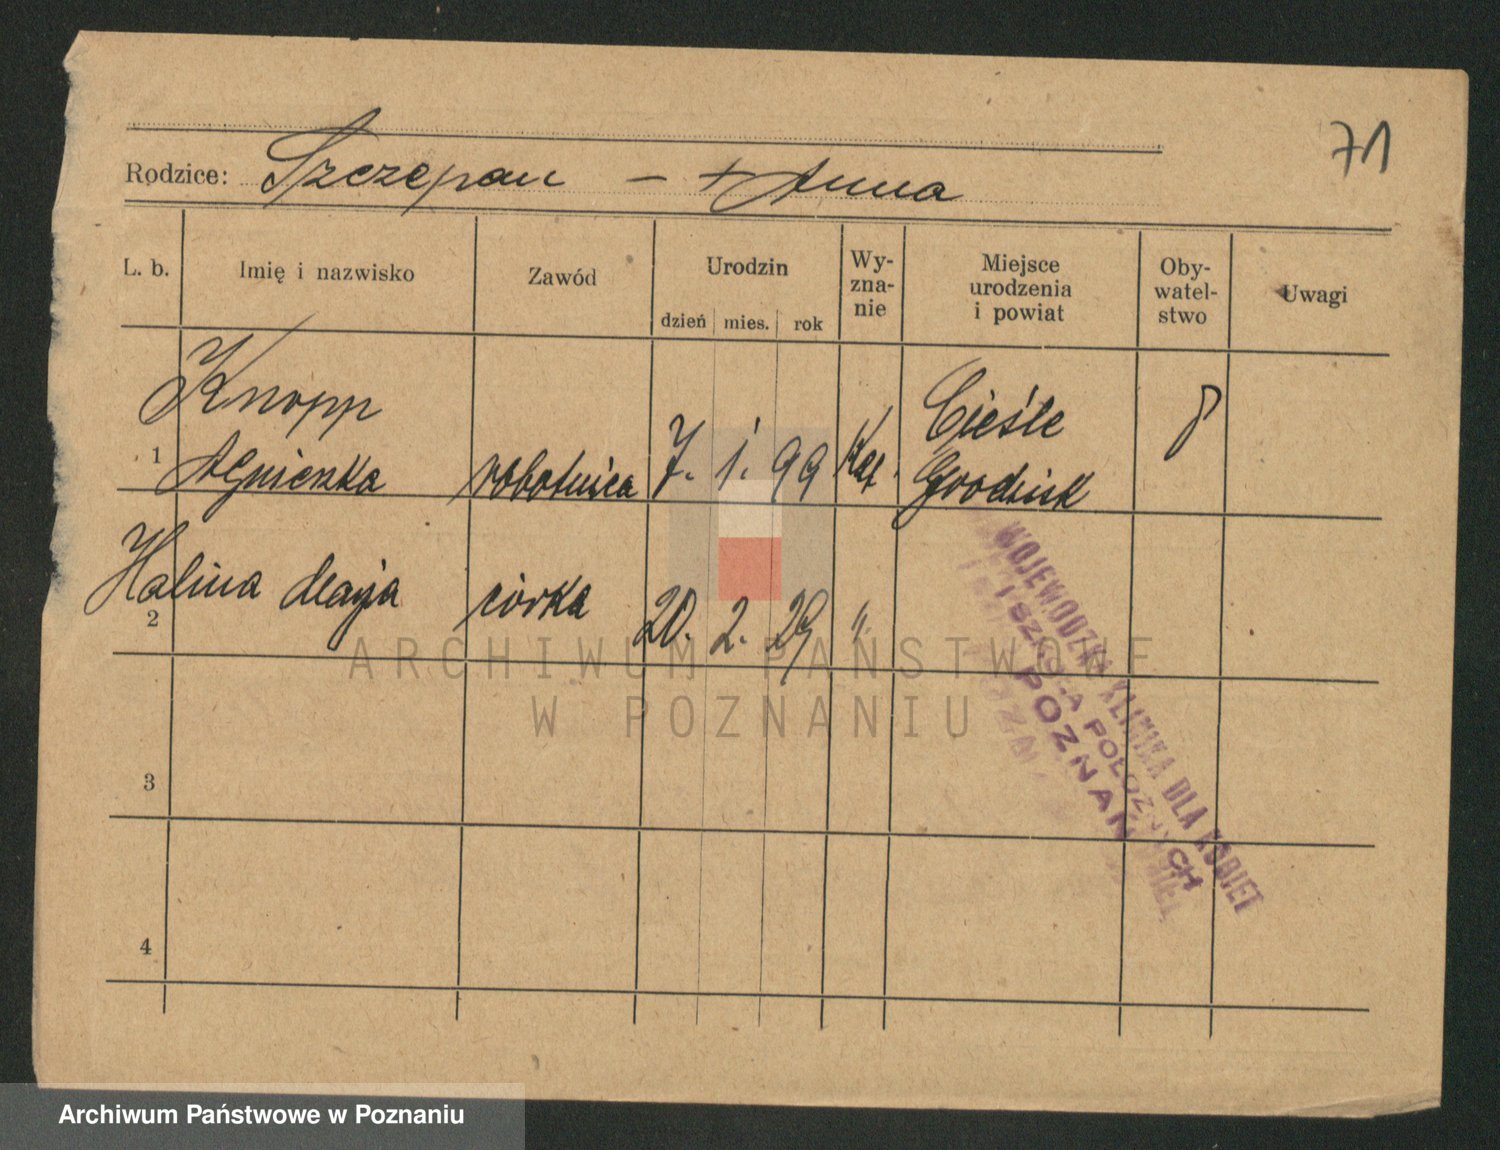 71
Rodzice: Szczepan – + Anna
L. b. Imię i nazwisko Zawód Urodzin dzień mies. rok Wy-zna-nie Miejsce urodzenia i powiat Oby-watel-stwo Uwagi
Knopp Cieśle
1 Agnieszka robotnica 7. 1. 99 Kat. Grodzisk
2 Halina Maryja córka 20. 2. 29 "
3
4
WOJEWÓDZKA KLINIKA DLA KOBIET
I SZKOŁA POŁOŻNYCH
POZNAŃ
ARCHIWUM PAŃSTWOWE
W POZNANIU
Archiwum Państwowe w Poznaniu